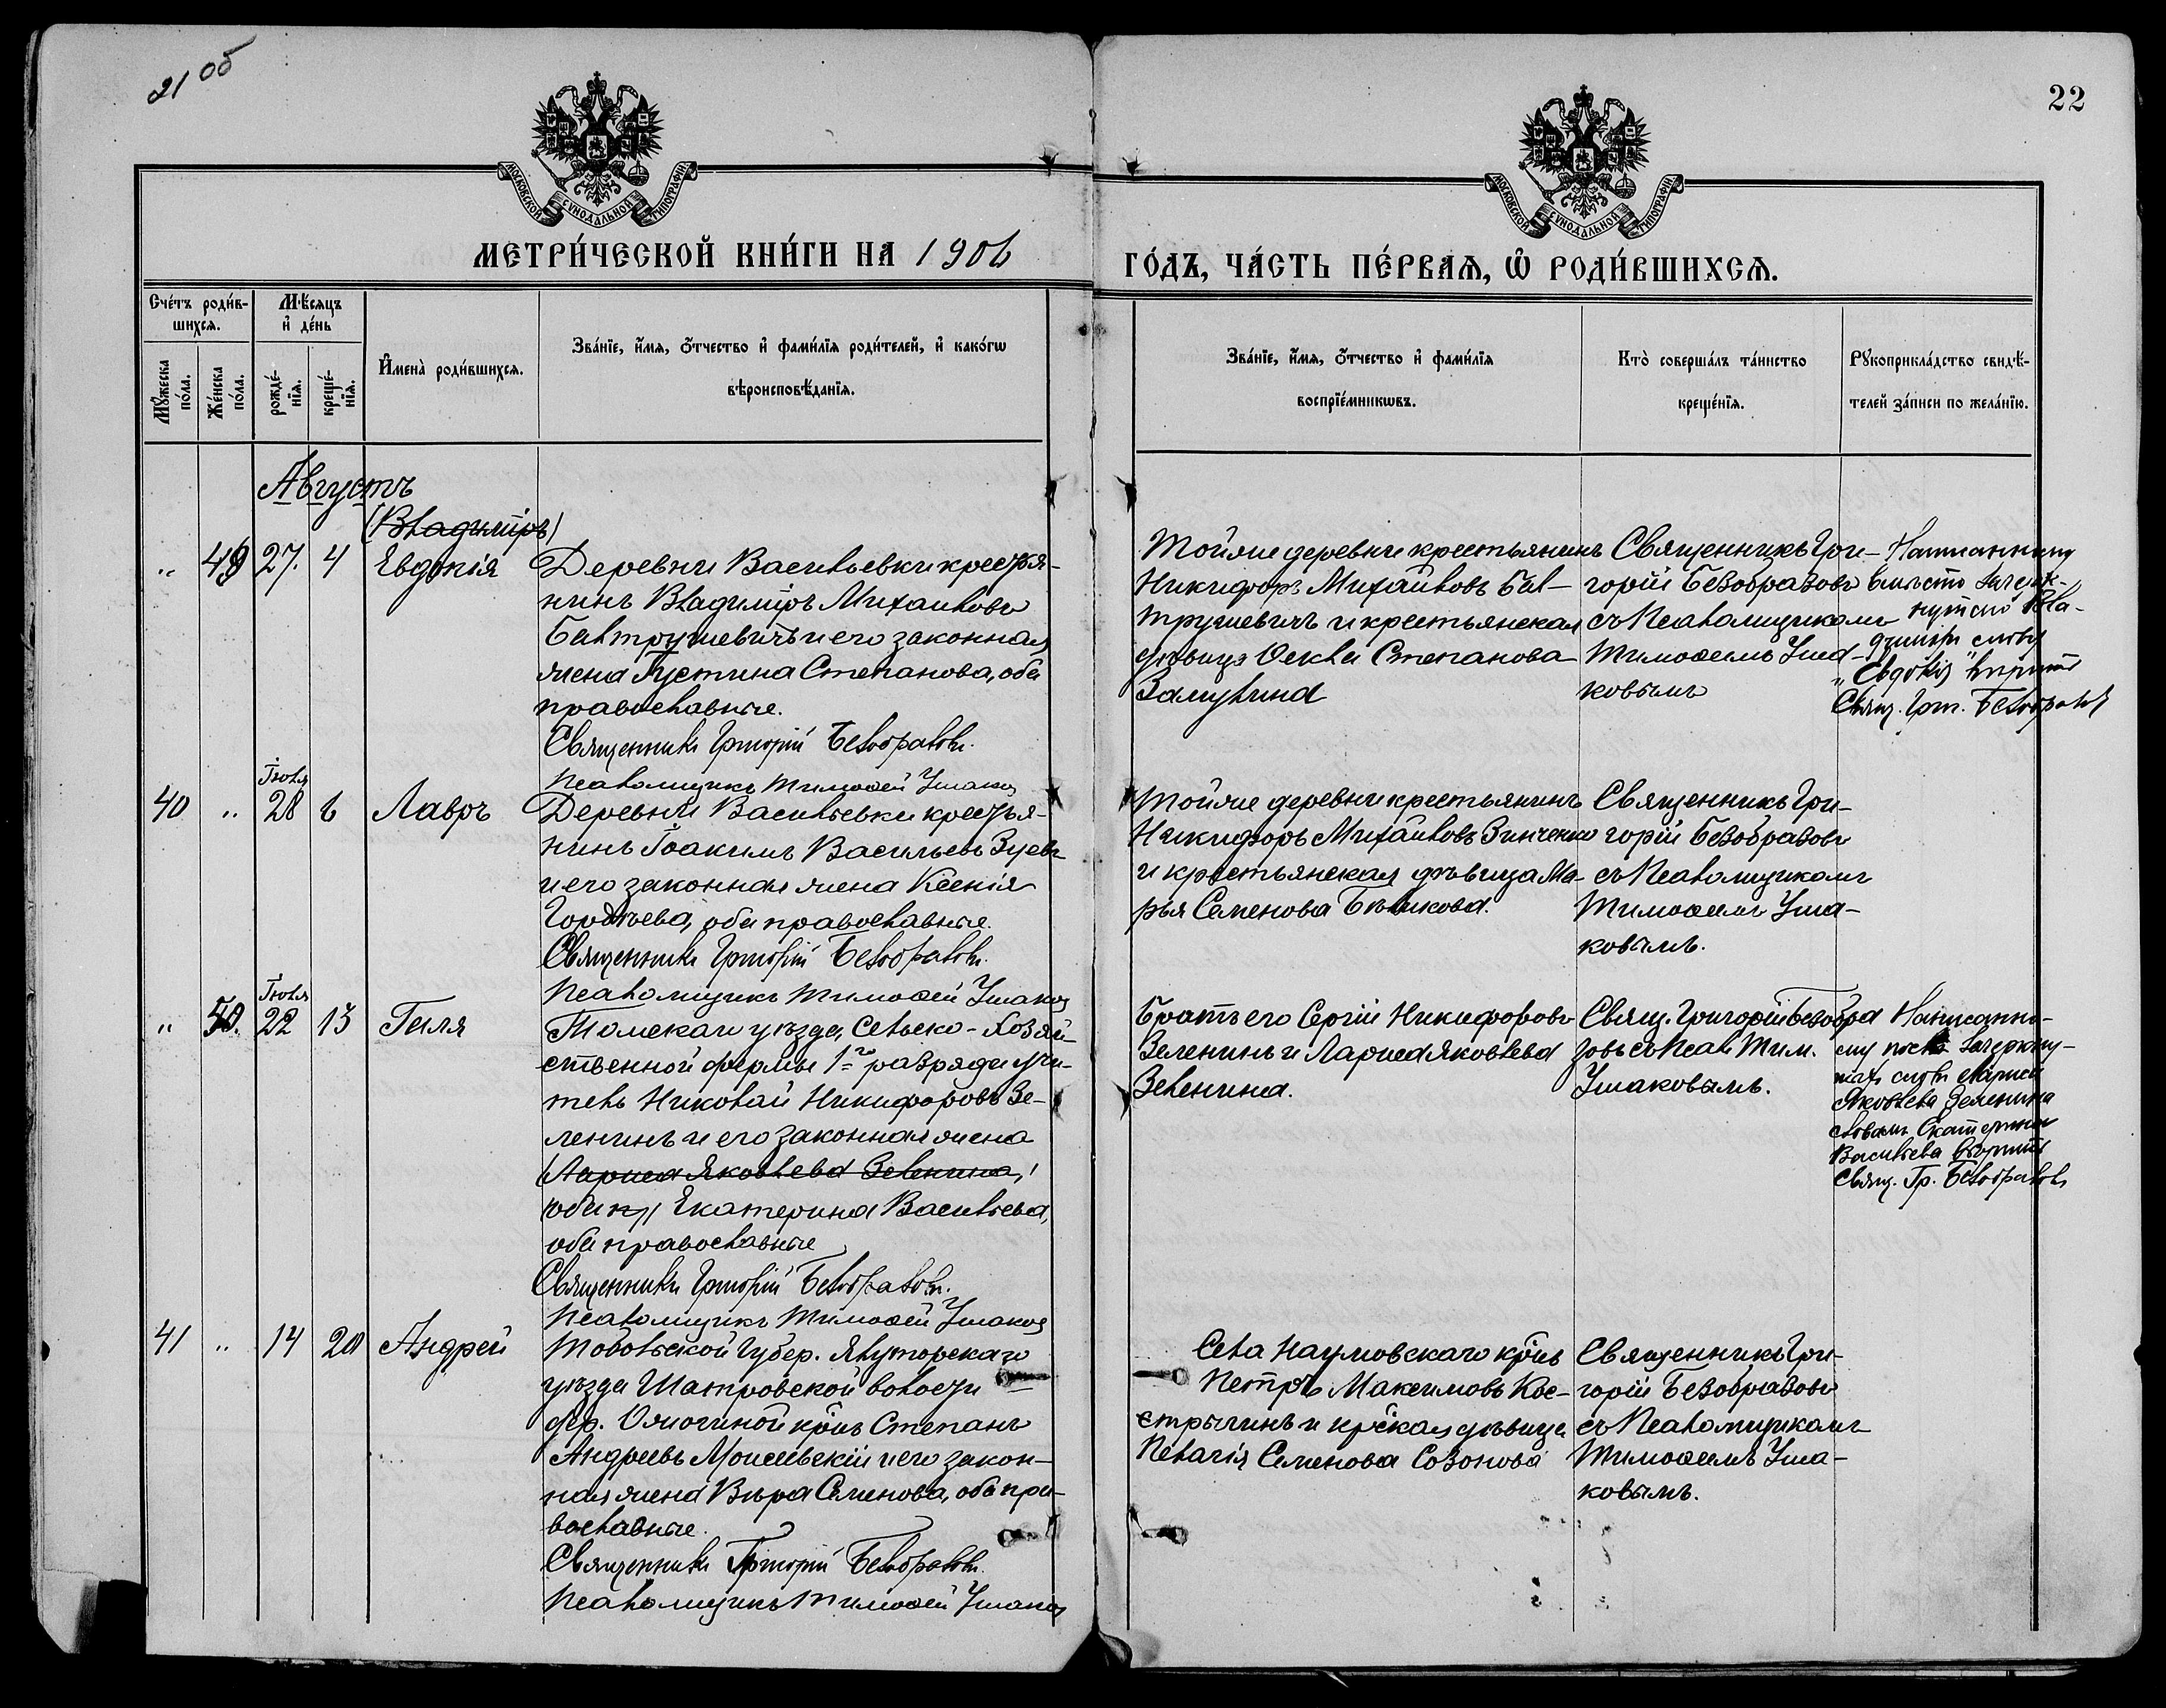 21 об
22
МОСКОВСКОЙ СУНОДАЛЬНОЙ ТИПОГРАФІИ
МОСКОВСКОЙ СУНОДАЛЬНОЙ ТИПОГРАФІИ
МЕТРИ́ЧЕСКОЙ КНИ́ГИ НА 1906
ГО́ДЪ, ЧА́СТЬ ПЕ́РВАѦ, Ѡ҆ РОДИ́ВШИХСѦ.
Сче́тъ роди́в-
шихсѧ.
Мꙋ́жеска по́ла.
Же́нска по́ла.
Мѣ́сѧцъ
и҆ де́нь
рожде́-
нїѧ.
креще́-
нїѧ.
И҆мена̀ роди́вшихсѧ.
Зва́нїе, и҆́мѧ, ѻ҆́тчество и҆ фами́лїѧ роди́телей, и҆ како́гѡ
вѣроисповѣ́данїѧ.
Зва́нїе, и҆́мѧ, ѻ҆́тчество и҆ фами́лїѧ
воспрїе́мникѡвъ.
Кто̀ соверша́лъ та́инство
креще́нїѧ.
Рꙋкоприкла́дство свидѣ́-
телей за́писи по жела́нїю.
Августъ
(Владиміръ)
" 49 27. 4 Евдокія
Деревни Васильевки крестья-
нинъ Владиміръ Михайловъ
Балтрушевичъ и его законная
жена Іустина Степанова, оба
православные.
Священникъ Григорій Безобразовъ.
Псаломщикъ Тимоѳей Ушаковъ
Тойже деревни крестьянинъ
Никифоръ Михайловъ Бал-
трушевичъ и крестьянская
дѣвица Ѳекла Степанова
Замулина
Священникъ Гри-
горій Безобразовъ
съ Псаломщикомъ
Тимоѳеемъ Уша-
ковымъ
Написанному
вмѣсто зачерк-
нутаго Вла-
диміръ слову
„Евдокія" вѣрить
Свящ. Григ. Безобразовъ
40 " Іюля 28 6 Лавръ
Деревни Васильевки крестья-
нинъ Іоакимъ Васильевъ Зуевъ
и его законная жена Ксенія
Гордѣева, оба православные.
Священникъ Григорій Безобразовъ.
Псаломщикъ Тимоѳей Ушаковъ
Тойже деревни крестьянинъ
Никифоръ Михайловъ Зинченко
и крестьянская дѣвица Ма-
рья Семенова Бѣликова.
Священникъ Гри-
горій Безобразовъ
съ Псаломщикомъ
Тимоѳеемъ Уша-
ковымъ.
" 50. Іюля 22 13 Геля
Томскаго уѣзда, Сельско-Хозяй-
ственной фермы 1го разряда учи-
тель Николай Никифоровъ Зе-
ленинъ и его законная жена
(Лариса Яковлева Зеленина,)
оба пр Екатерина Васильева,
оба православные
Священникъ Григорій Безобразовъ.
Псаломщикъ Тимоѳей Ушаковъ
Братъ его Сергій Никифоровъ
Зеленинъ и Лариса Яковлева
Зеленина.
Свящ. Григорій Безобра
зовъ съ Псал. Тим.
Ушаковымъ.
Написанно-
му послѣ зачеркну-
тыхъ словъ Лариса
Яковлева Зеленина
словамъ Екатерина
Васильева вѣрить
Свящ. Гр. Безобразовъ
41 " 14 20 Андрей
Тобольской Губер. Ялуторскаго
уѣзда Шатровской волости
дер. Ожогиной кр̃нъ Степанъ
Андреевъ Моисеевскій и его закон-
ная жена Вѣра Семенова, оба пра-
вославные.
Священникъ Григорій Безобразовъ.
Псаломщикъ Тимоѳей Ушаковъ
Села Наумовскаго кр̃нъ
Петръ Максимовъ Кос-
стрыгинъ и кр̃ская дѣвица
Пелагія Семенова Созонова
Священникъ Гри-
горій Безобразовъ
съ Псаломщикомъ
Тимоѳеемъ Уша-
ковымъ.